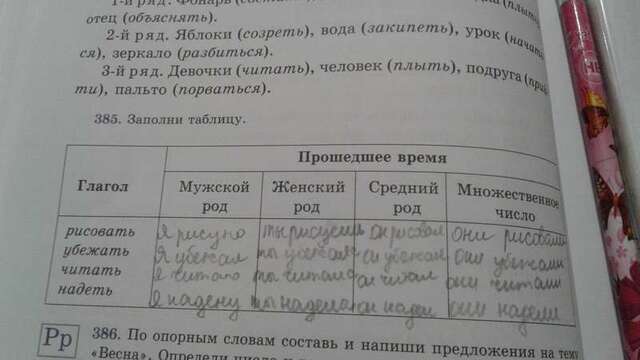 1-й ряд. Фонарь
отец (объяснять).
2-й ряд. Яблоки (созреть), вода (закипеть), урок (начать-
ся), зеркало (разбиться).
3-й ряд. Девочки (читать), человек (плыть), подруга (прий-
ти), пальто (порваться).
385. Заполни таблицу.
Глагол
Прошедшее время
Мужской род
Женский род
Средний род
Множественное число
рисовать я рисую ты рисуешь он рисовал они рисовали
убежать я убежал ты убежала он убежал они убежали
читать я читаю ты читала он читал они читали
надеть я надену ты надела он надел они надели
Рр
386. По опорным словам составь и напиши предложения на тему
«Весна». Определи число и